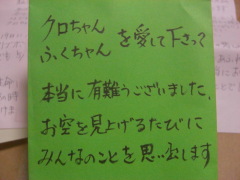 クロちゃん
ふくちゃん を愛して下さって
本当に有難うございました、
お空を見上げるたびに
みんなのことを思い出します